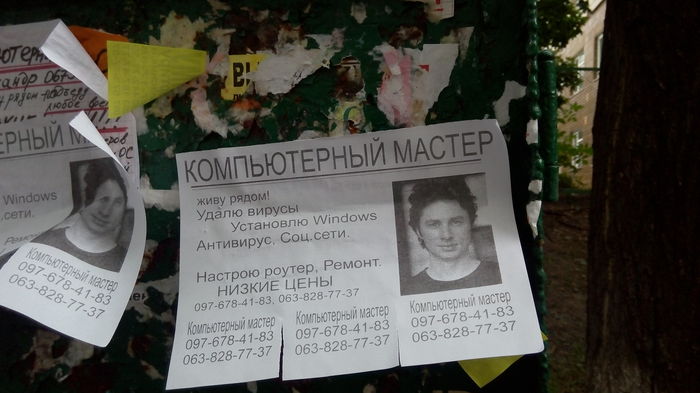 КОМПЬЮТЕРНЫЙ МАСТЕР
живу рядом!
Удалю вирусы
Установлю Windows
Антивирус, Соц.сети.
Настрою роутер, Ремонт.
НИЗКИЕ ЦЕНЫ
097-678-41-83, 063-828-77-37
Компьютерный мастер
097-678-41-83
063-828-77-37
Компьютерный мастер
097-678-41-83
063-828-77-37
Компьютерный мастер
097-678-41-83
063-828-77-37
ЕРНЫЙ М
Windows
.сети.
Компьютерный мастер
097-678-41-83
063-828-77-37